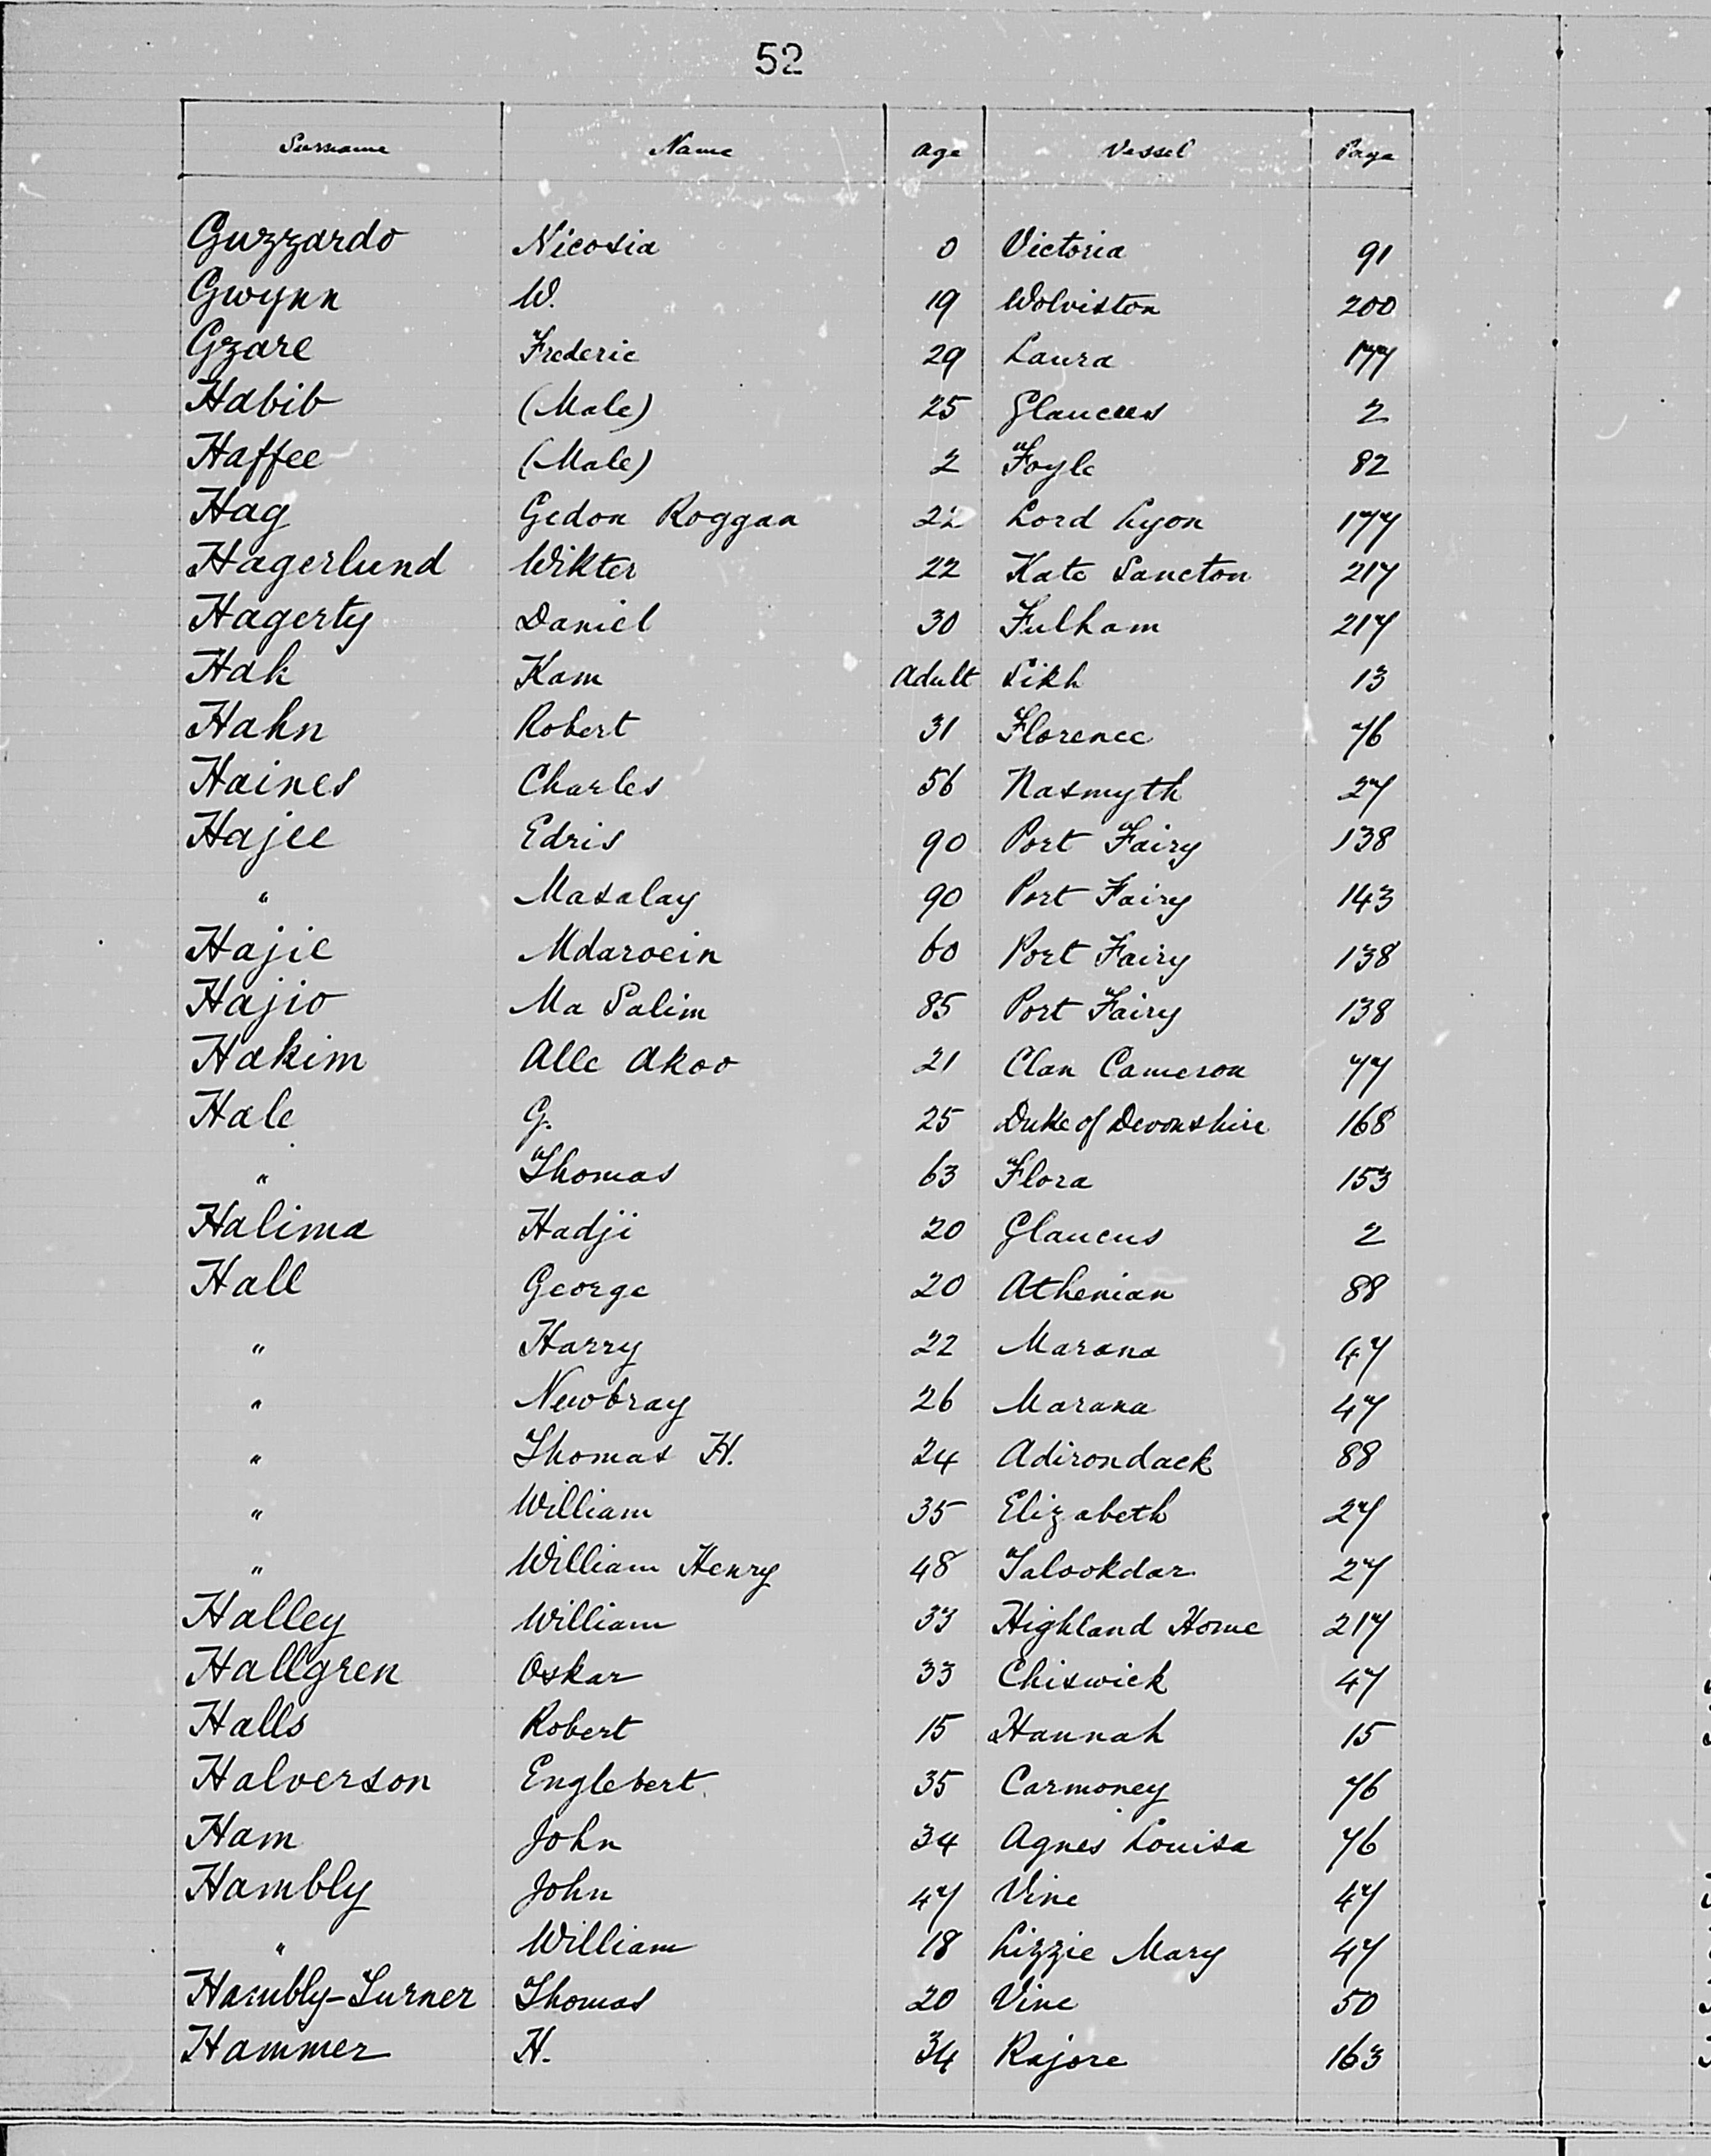 52
Surname Name Age Vessel Page
Guzzardo Nicosia 0 Victoria 91
Gwynn W. 19 Wolviston 200
Gzare Frederic 29 Laura 177
Habib (Male) 25 Glaucus 2
Haffee (Male) 2 Foyle 82
Hag Gedon Roggan 22 Lord Lyon 177
Hagerlund Wikter 22 Kate Sancton 217
Hagerty Daniel 30 Fulham 217
Hak Kam Adult Sikh 13
Hahn Robert 31 Florence 76
Haines Charles 56 Nasmyth 27
Hajee Edris 90 Port Fairy 138
" Masalay 90 Port Fairy 143
Hajie Mdaroein 60 Port Fairy 138
Hajio Ma Salim 85 Port Fairy 138
Hakim Alle Akoo 21 Clan Cameron 77
Hale G. 25 Duke of Devonshire 168
" Thomas 63 Flora 153
Halima Hadji 20 Glaucus 2
Hall George 20 Athenian 88
" Harry 22 Marana 47
" Newbray 26 Marana 47
" Thomas H. 24 Adirondack 88
" William 35 Elizabeth 27
" William Henry 48 Talookdar 27
Halley William 33 Highland Home 217
Hallgren Oskar 33 Chiswick 47
Halls Robert 15 Hannah 15
Halverson Englebert 35 Carmoney 76
Ham John 34 Agnes Louisa 76
Hambly John 47 Vine 47
" William 18 Lizzie Mary 47
Hambly-Turner Thomas 20 Vine 50
Hammer H. 34 Rajore 163